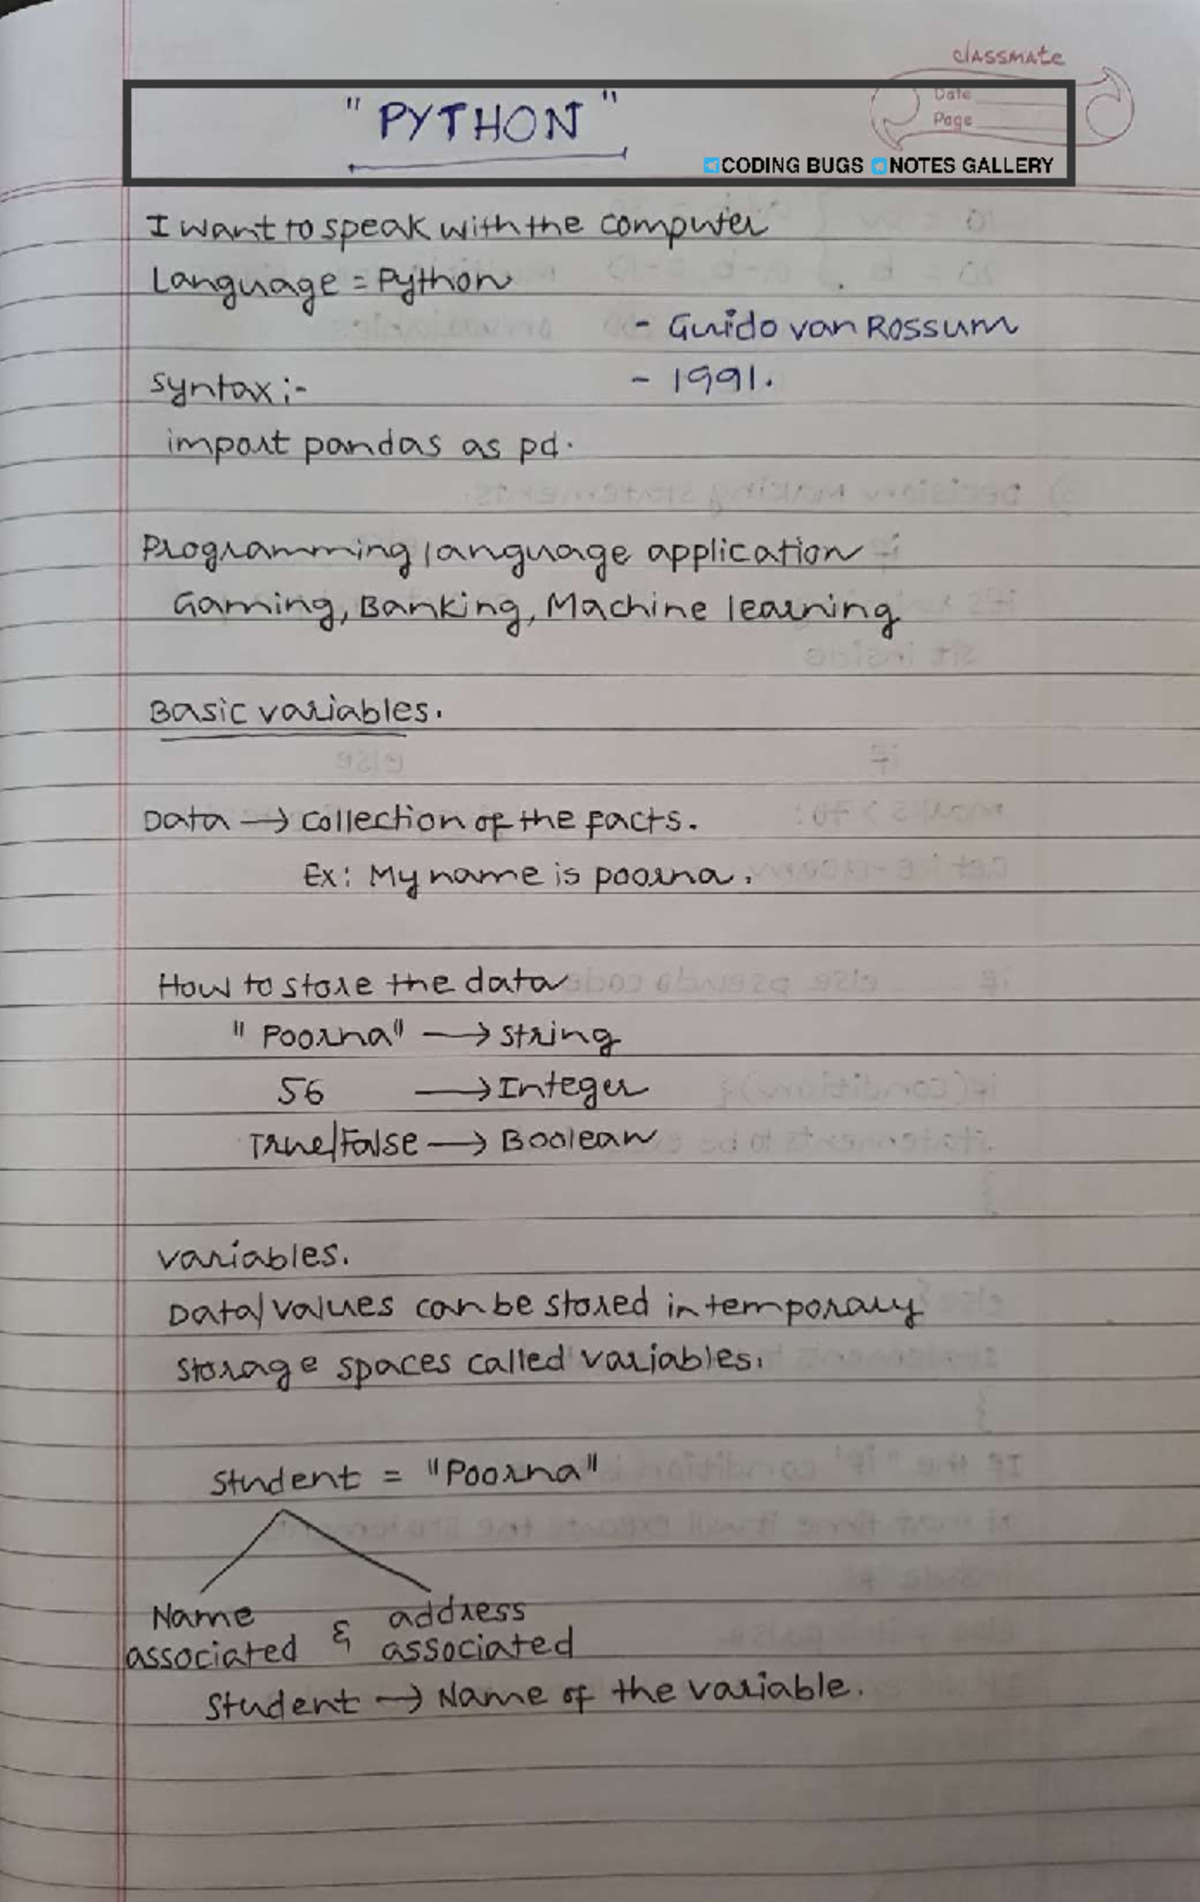 classmate
Date
Page
"PYTHON"
CODING BUGS NOTES GALLERY
I want to speak with the computer
Language = Python
- Guido van Rossum
Syntax :-
- 1991.
import pandas as pd.
Programming language application
Gaming, Banking, Machine learning
Basic variables.
Data → collection of the facts.
Ex: My name is poorna.
How to store the data
"Poorna" → String
56 → Integer
True/False → Boolean
variables.
Data/values can be stored in temporary
storage spaces called variables.
Student = "Poorna"
Name & address
associated associated
Student → Name of the variable.